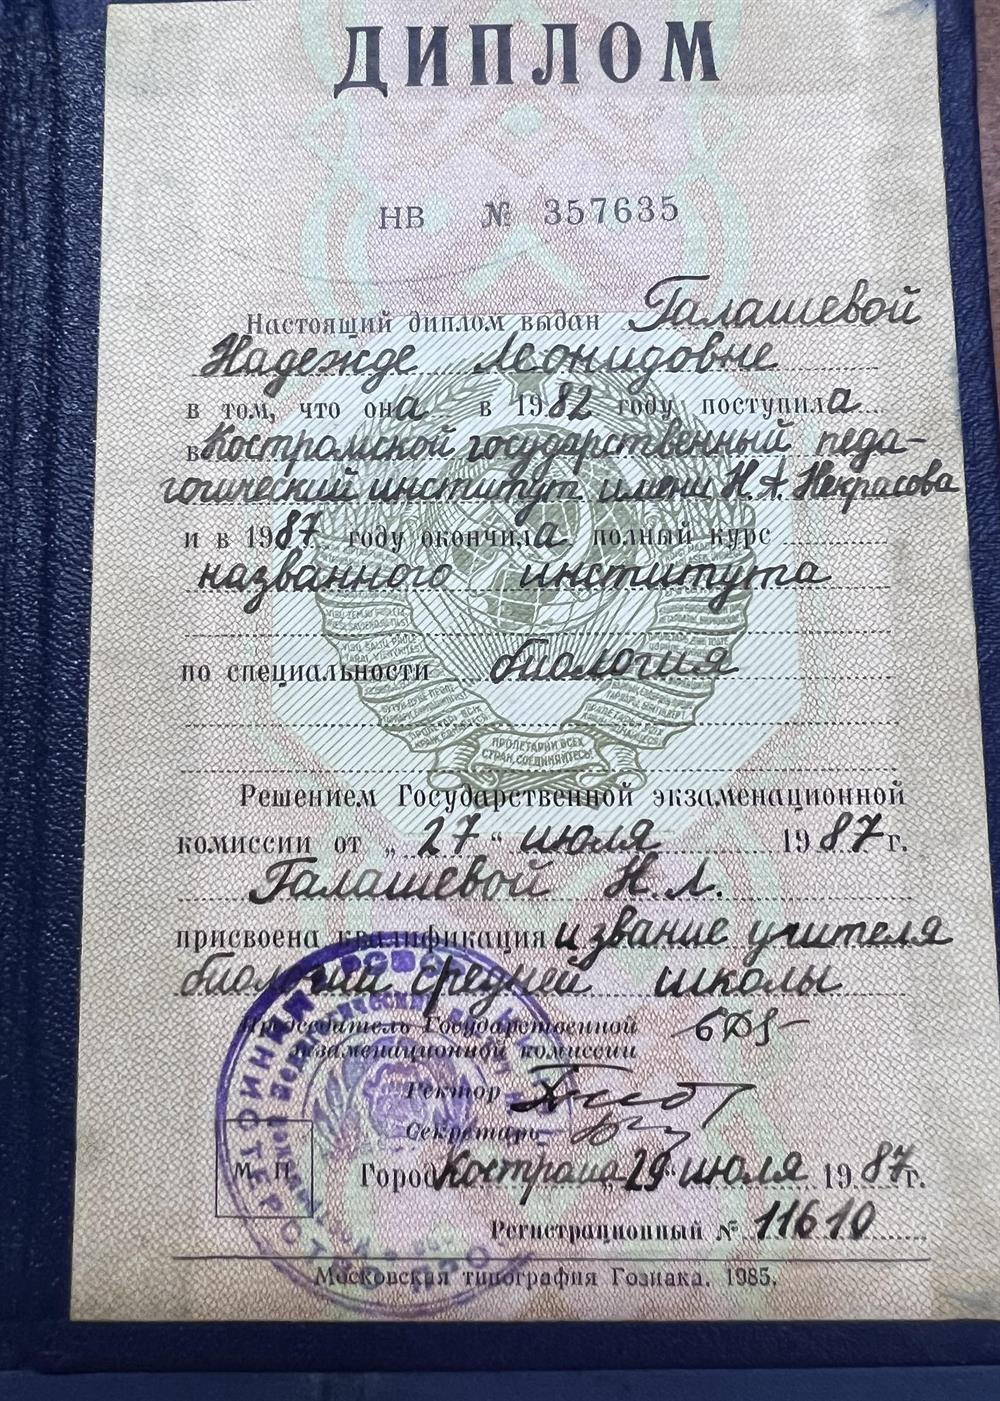 ДИПЛОМ
НВ № 357635
Настоящий диплом выдан Галашевой
Надежде Леонидовне
в том, что она в 1982 году поступила
в Костромской государственный педа-
гогический институт имени Н.А. Некрасова
и в 1987 году окончила полный курс
названного института
по специальности биология
ПРОЛЕТАРИИ ВСЕХ
СТРАН, СОЕДИНЯЙТЕСЬ!
Решением Государственной экзаменационной
комиссии от „27“ июля 1987 г.
Галашевой Н.Л.
присвоена квалификация и звание учителя
биологии средней школы
Председатель Государственной
экзаменационной комиссии
Ректор
Секретарь
М. П.
Город Кострома „29“ июля 1987 г.
Регистрационный № 11610
Московская типография Гознака. 1985.